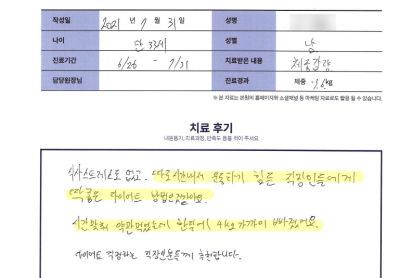 작성일 2021 년 7 월 31 일 성명
나이 만 33세 성별 남
진료기간 6/26 ~ 7/31 치료받은 내용 체중감량
담당원장님 진료경과 체중 -5.6kg
※ 본 자료는 본원의 홈페이지와 소셜채널 등 마케팅 자료로도 활용 될 수 있습니다.
치료 후기
내원동기, 치료과정, 만족도 등을 적어 주세요
식사스트레스도 없고. 따로시간내서 운동하기 힘든 직장인들에게
딱좋은 다이어트 방법인것같아요.
시간맞춰 약만먹었는데 한달에 4kg 가까이 빠졌어요.
다이어트 걱정하는 직장인분들께 추천합니다.